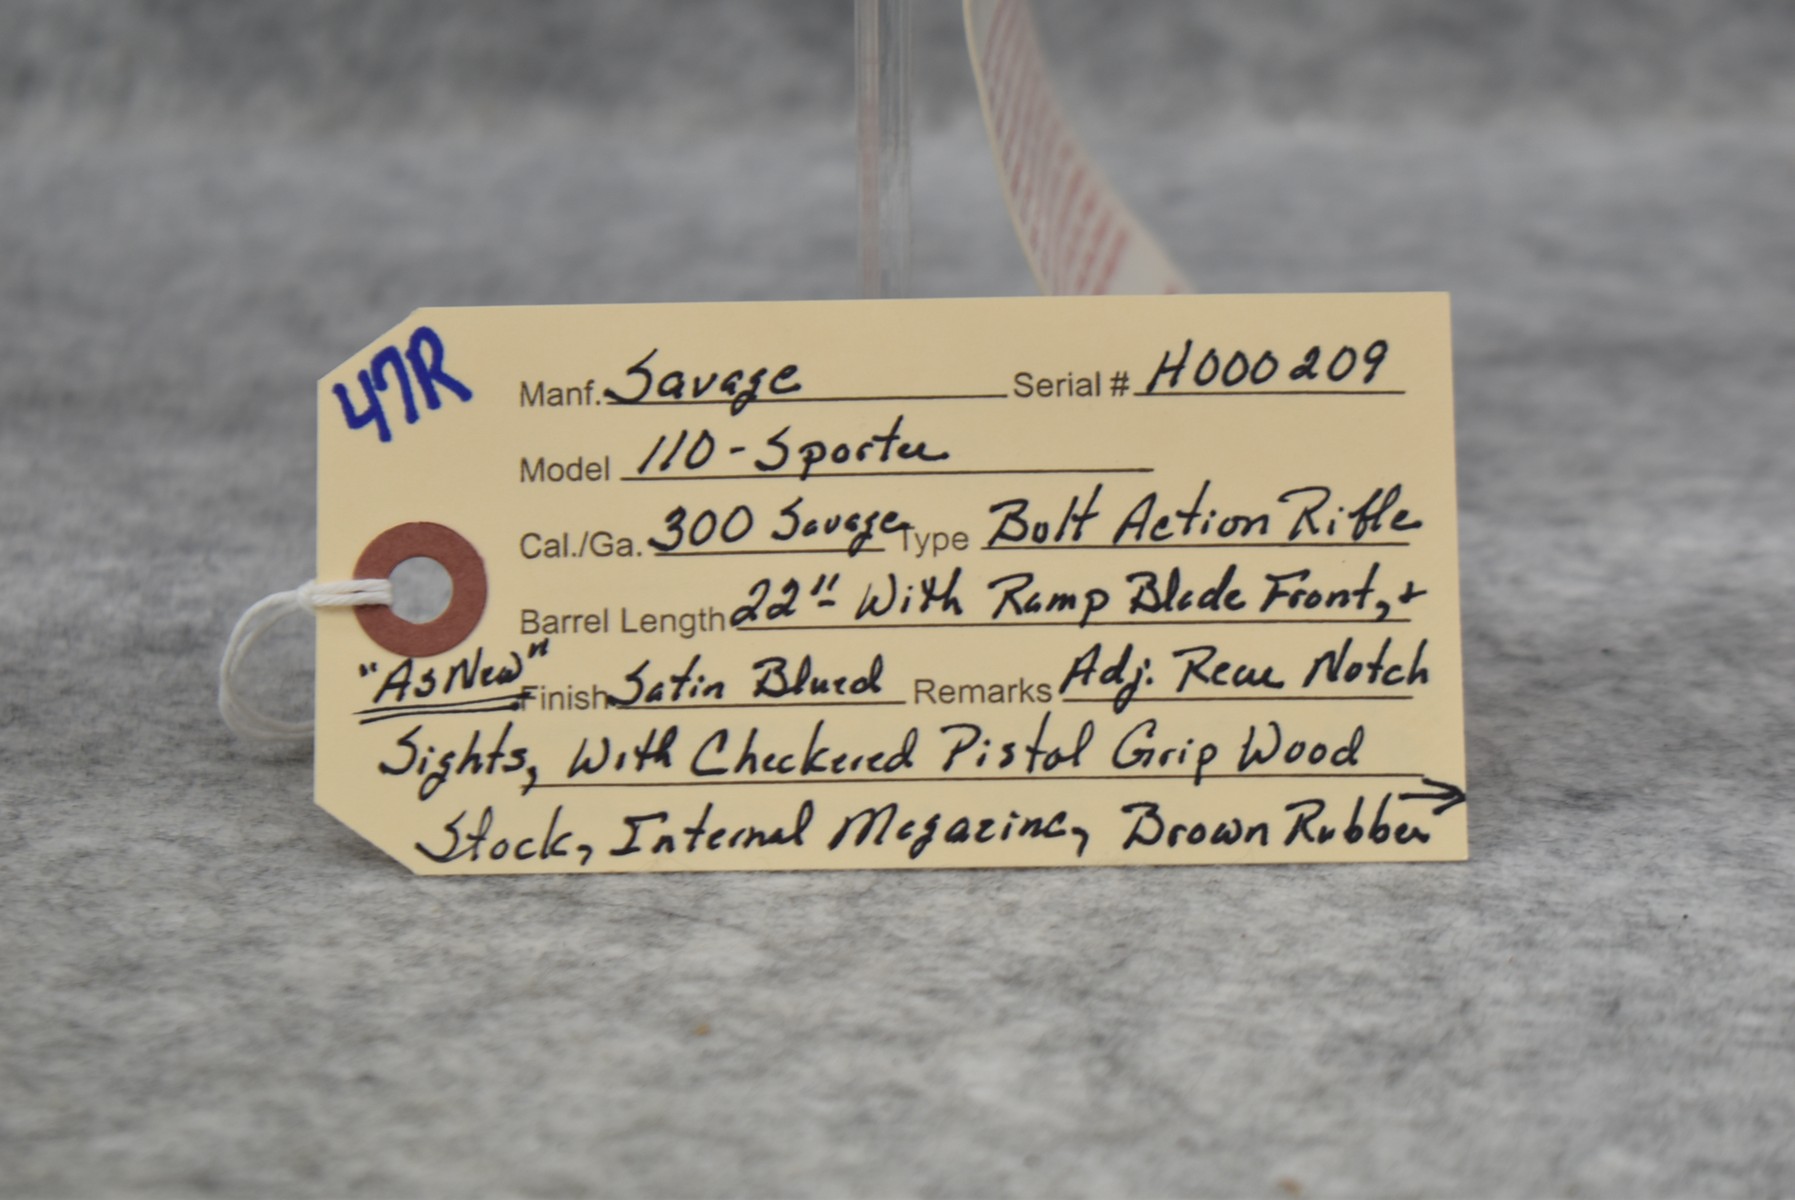 47R
Manf. Savage Serial # H000209
Model 110-Sporter
Cal./Ga. 300 Savage Type Bolt Action Rifle
Barrel Length 22" With Ramp Blade Front, &
"As New" Finish Satin Blued Remarks Adj. Rear Notch
Sights, With Checkered Pistol Grip Wood
Stock, Internal Magazine, Brown Rubber →